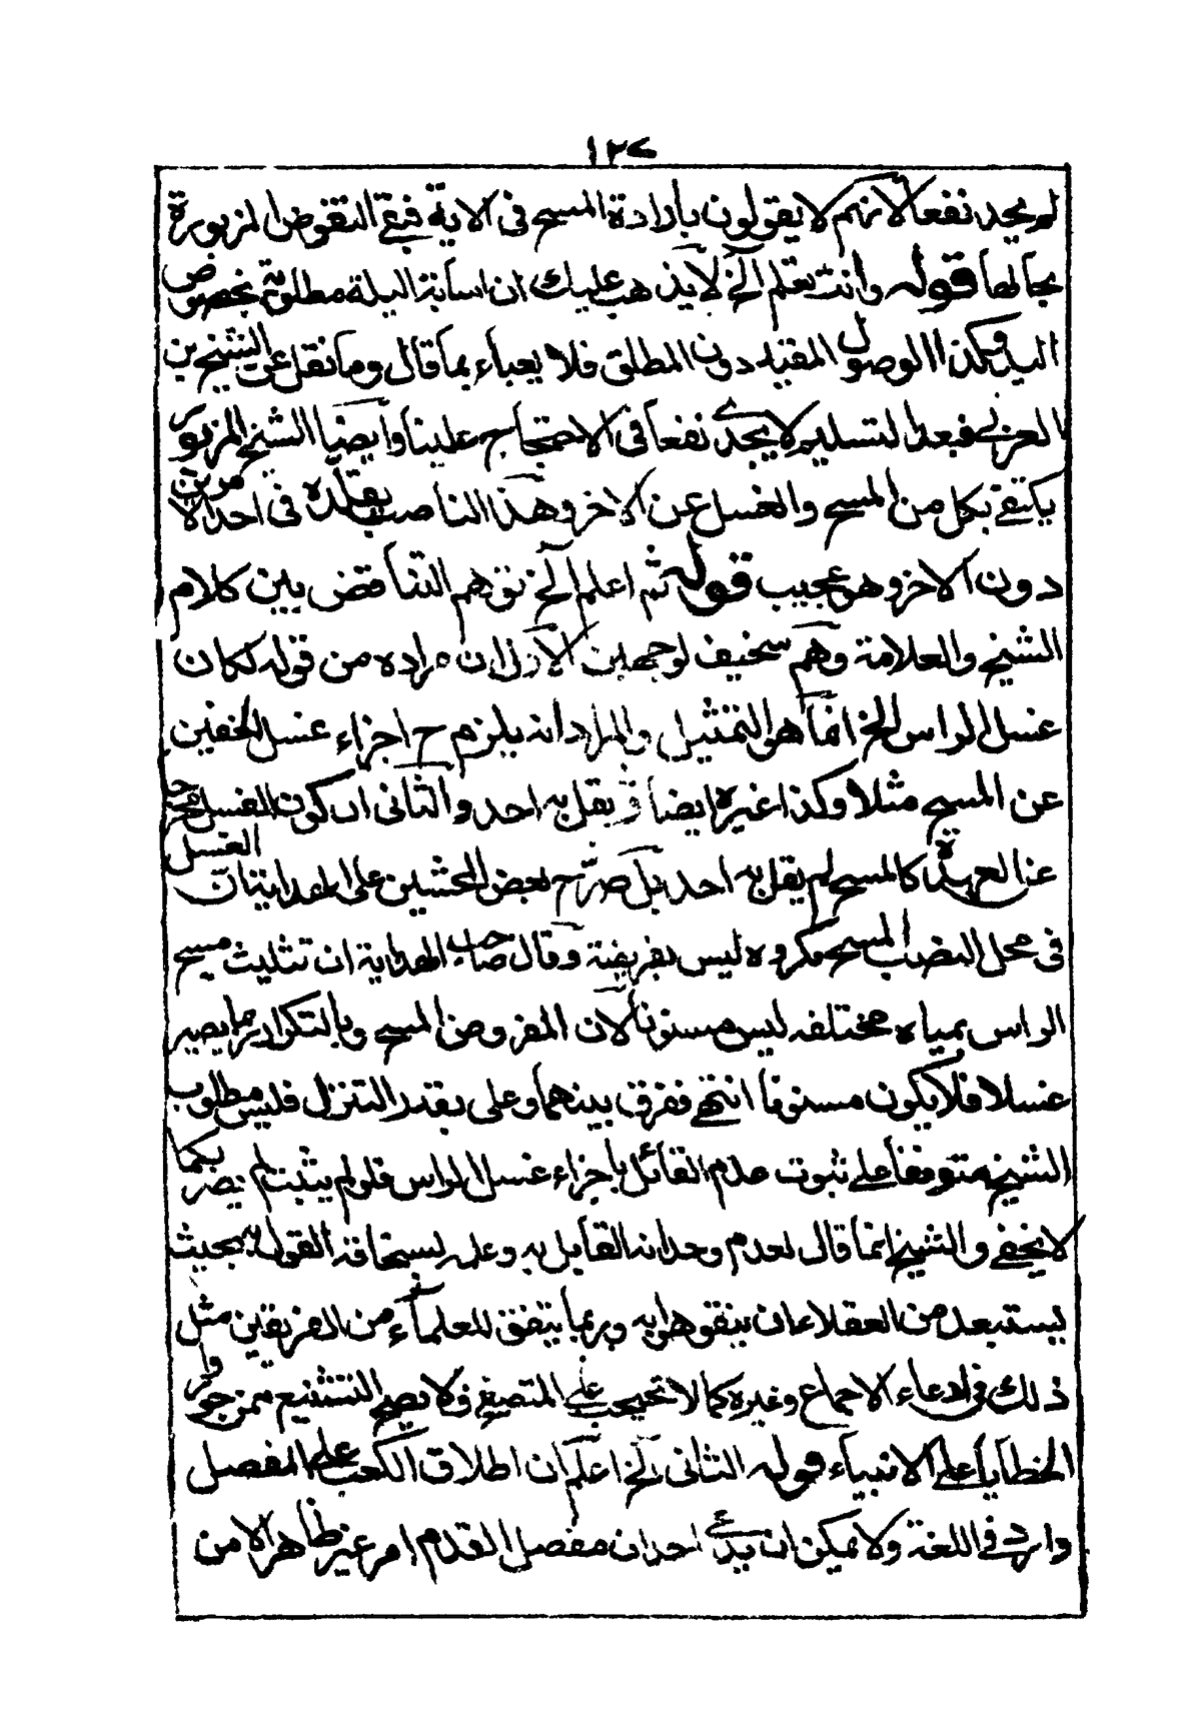 ١٢٧
لم يجد نفعا لانهم لا يقولون بارادة المسح فى الاية فبقى النقوض المزبورة
بحالها قوله وانت تعلم الخ لا يذهب عليك ان اسالة البلة مطلوبة بخصوص
اليد وكذا الوصول المقيد دون المطلق فلا يعباء بما قال وما نقل عن الشيخ بن
العربى فبعد التسليم لا يجدى نفعا فى الاحتجاج علينا وايضا الشيخ المزبور
يكتفى بكل من المسح والغسل عن الاخر وهذا الناصب يقلده فى احد الامرين
دون الاخر وهو عجيب قوله ثم اعلم الخ توهم التناقض بين كلام
الشيخ والعلامة وهم سخيف لوجهين الاول ان مراده من قوله لكان
غسل الراس الخ انما هو التمثيل والمراد انه يلزم ح اجزاء غسل الخفين
عن المسح مثلا وكذا غيره ايضا و يقل به احد والثانى ان كون الغسل مجزيا
عن العهدة كالمسح لم يقل به احد بل صرح بعض المحشين على الهداية بان الغسل
فى محل المسح مكروه ليس بفريضة وقال صاحب الهداية ان تثليث مسح
الراس بمياه مختلفه ليس مسنونا لان المفروض المسح وبالتكرار ربما يصير
غسلا فلا يكون مسنونا انتهى ففرق بينهما وعلى تقدير التنزل فليس مطلوب
الشيخ متوقفا على ثبوت عدم القائل باجزاء غسل الراس فلو لم يثبت لم يضر بكما
لا يخفى والشيخ انما قال لعدم وجدانه القايل به وعلمه لسخافة القول به بحيث
يستبعد من العقلاء ان يتفوهوا به وربما يتفق للعلماء من الفريقين مثل
ذلك فى ادعاء الاجماع وغيره كما لا تحجب على المتصفح ولا يصح التشنيع ممن جوز
الخطايا على الانبياء قوله الثانى الخ اعلم ان اطلاق الكعب على المفصل
وارد فى اللغة ولا يمكن ان يدعى احد ان مفصل القدم امر غير ظاهر الامن